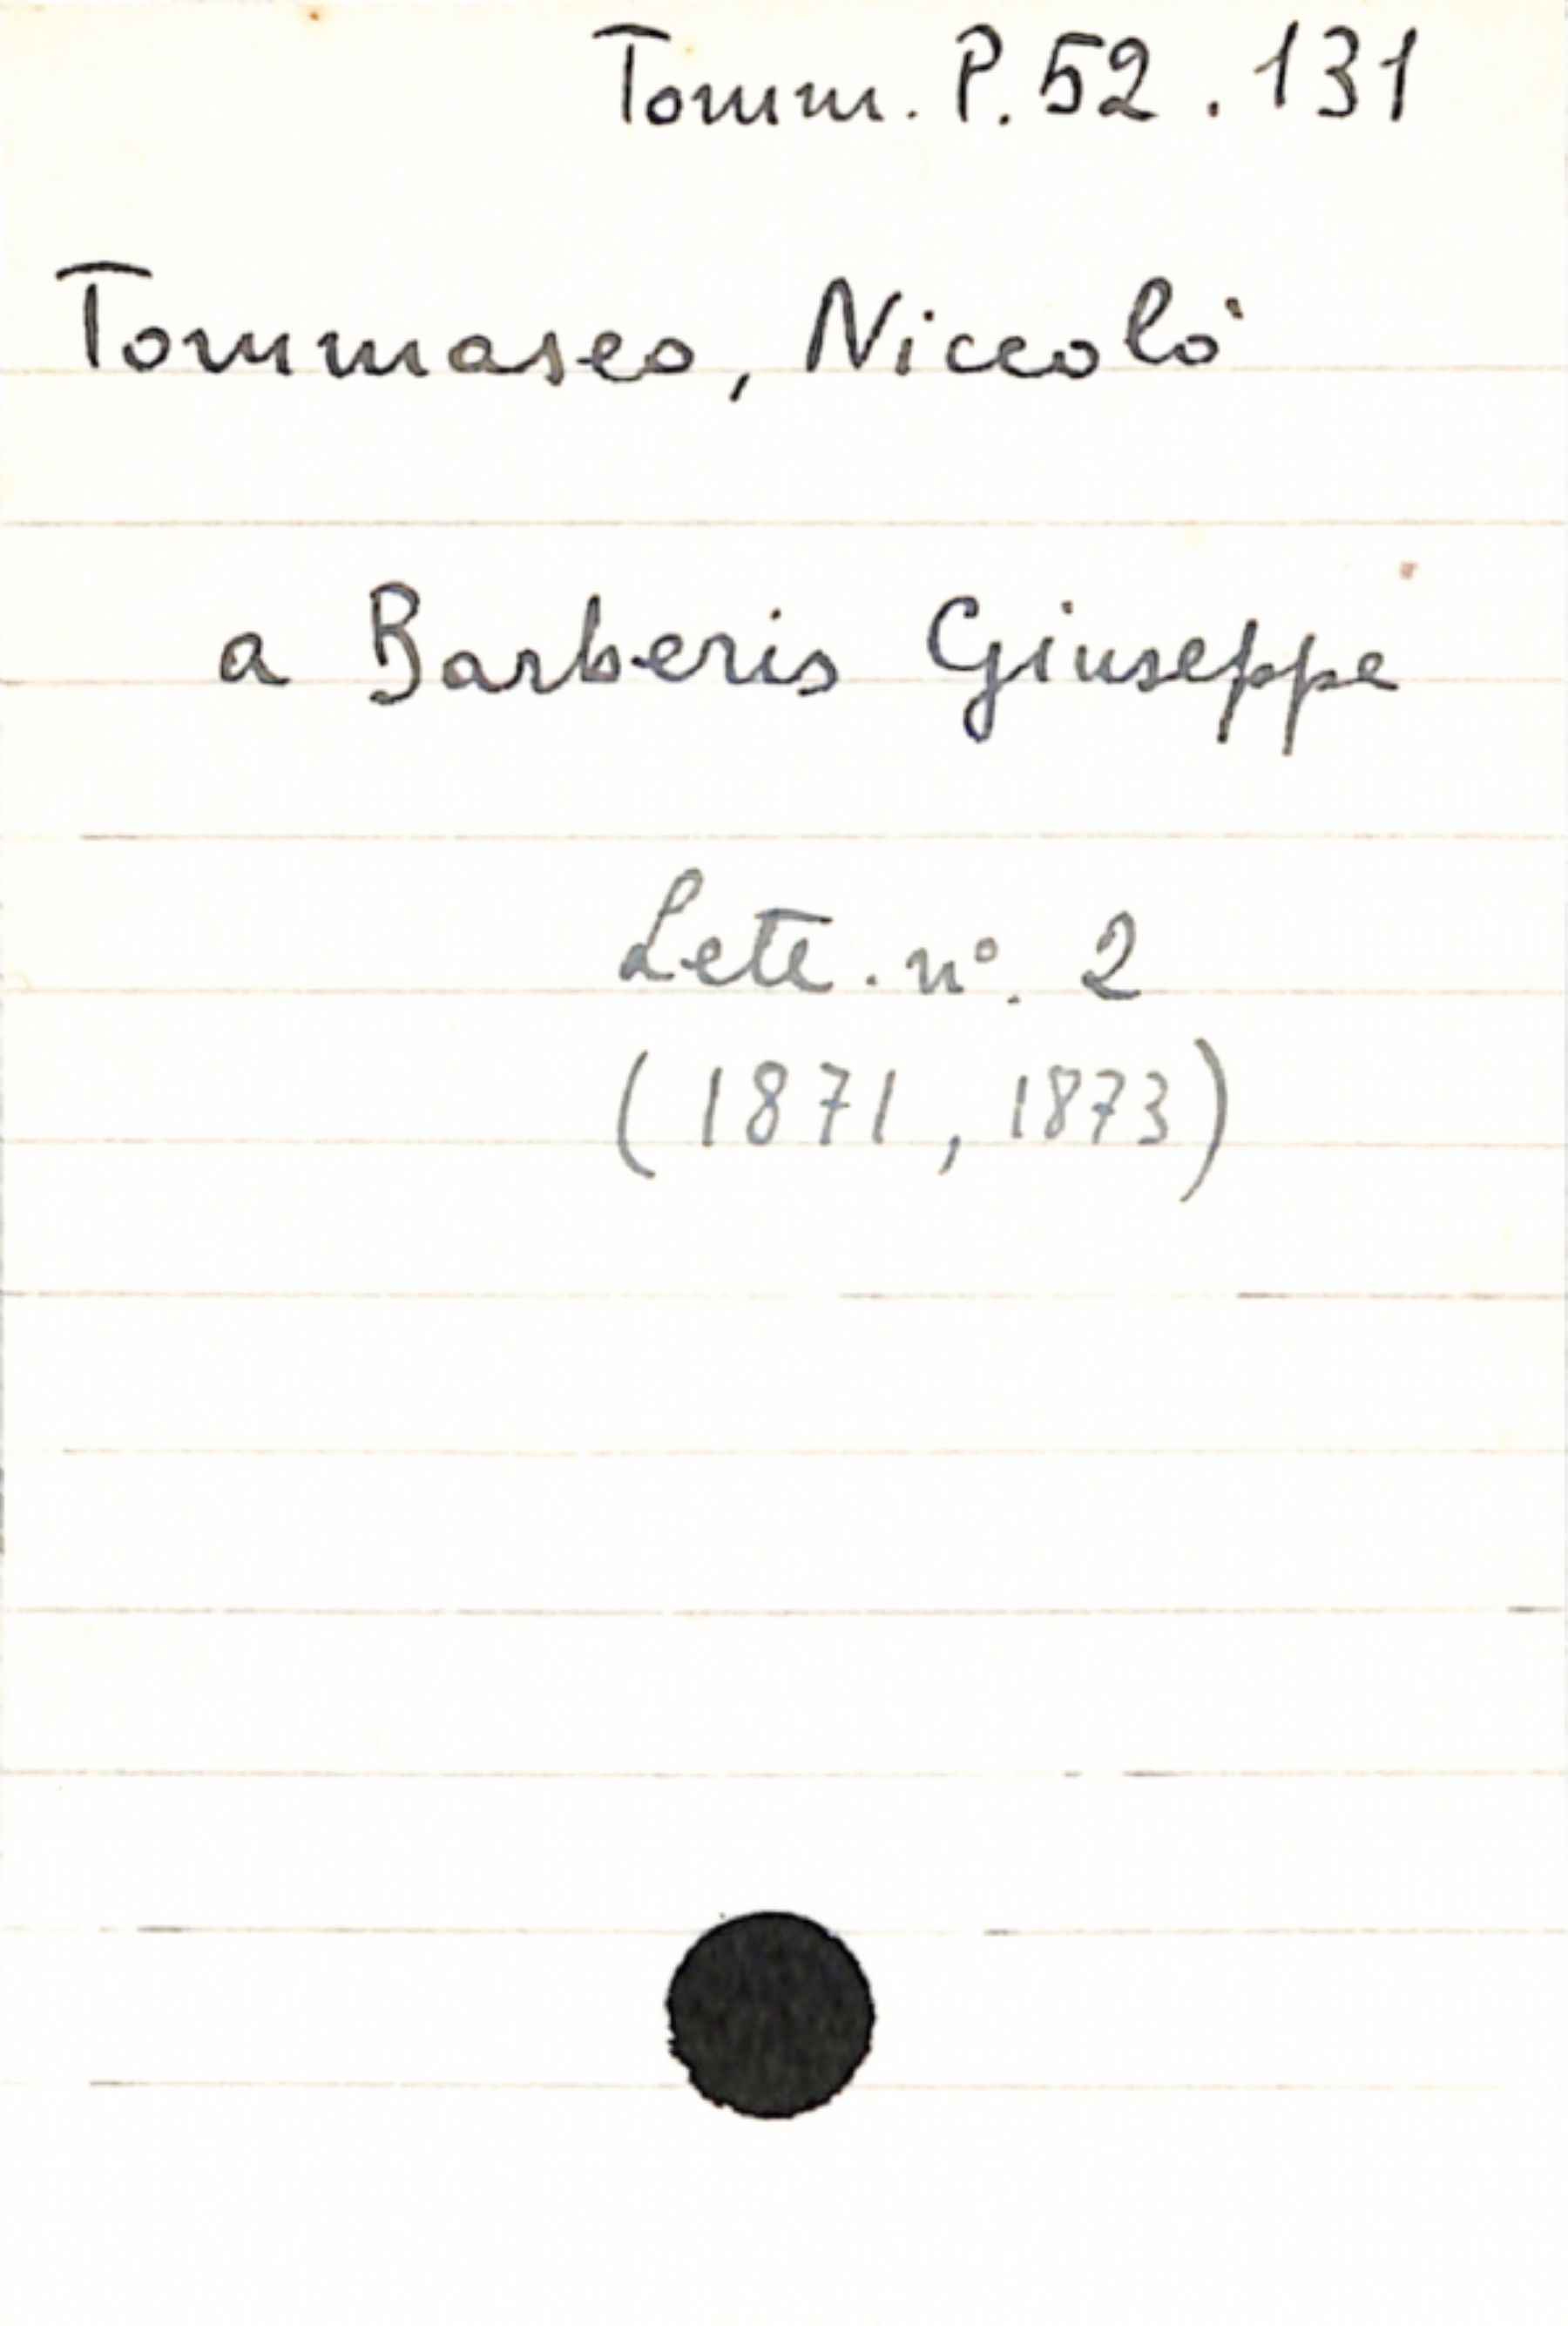 Tomm. P. 52. 131
Tommaseo, Niccolò
a Barberis Giuseppe
Lett. n°. 2
(1871, 1873)